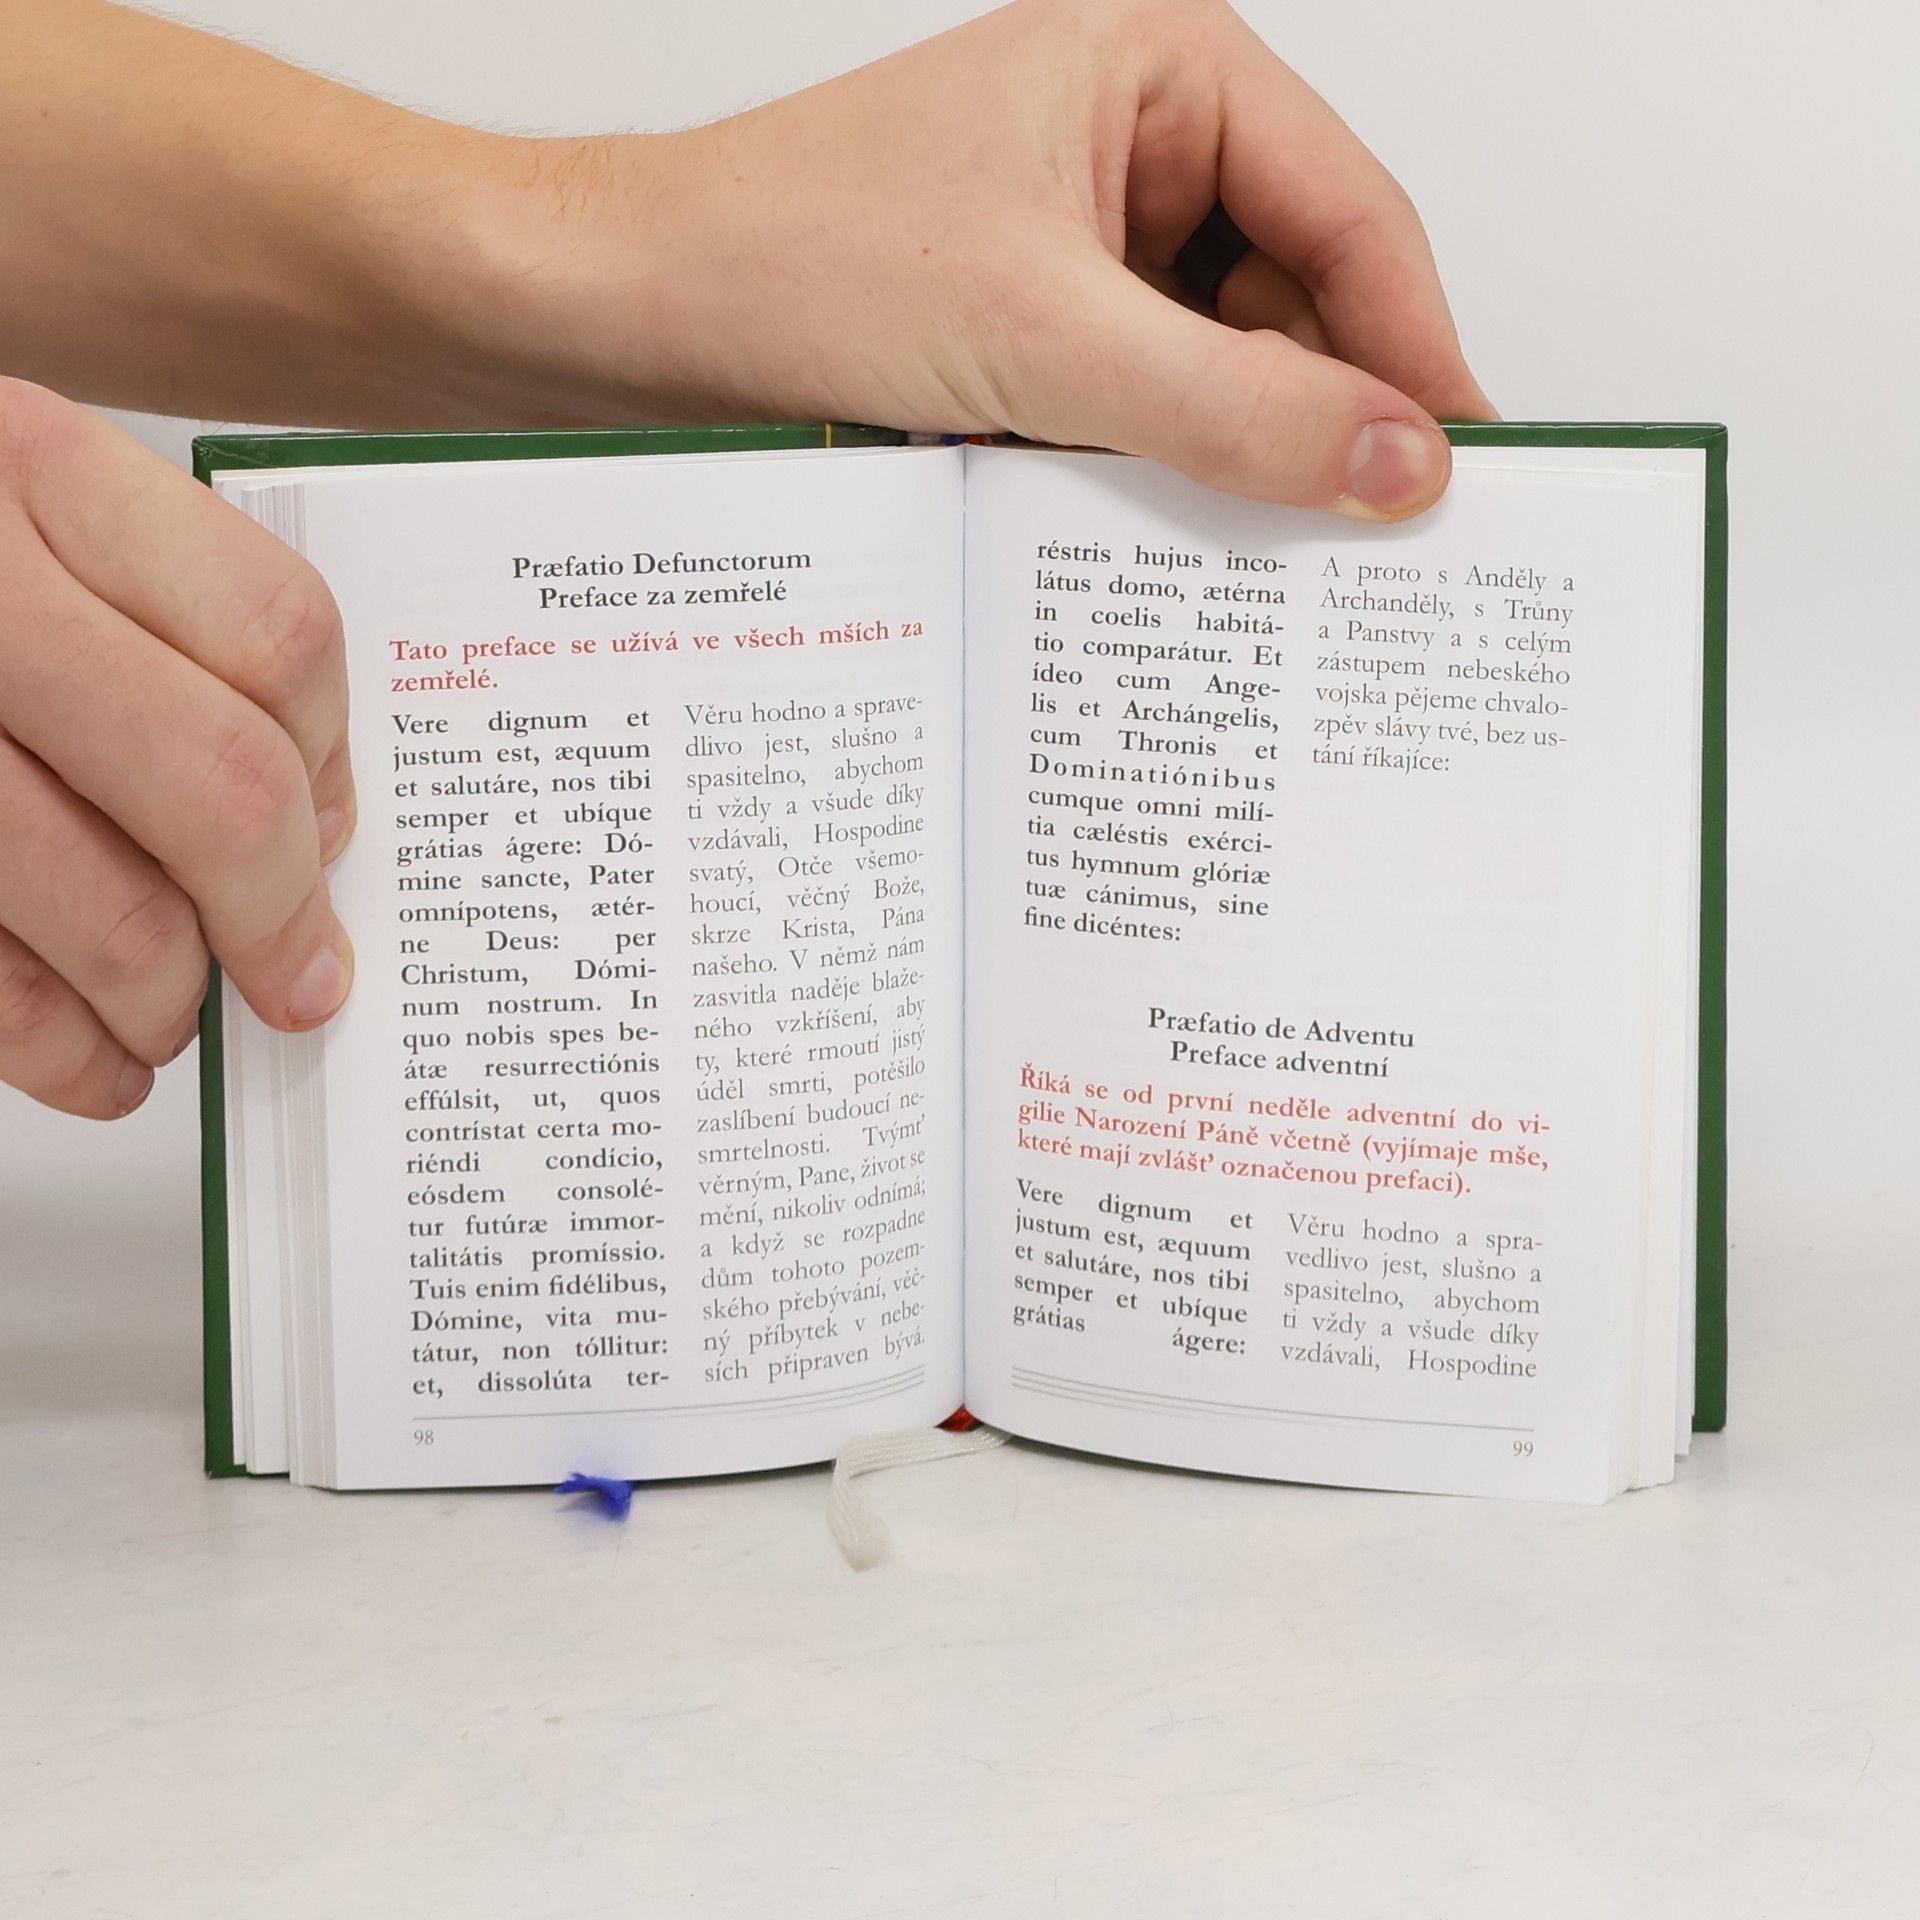 Præfatio Defunctorum
Preface za zemřelé
Tato preface se užívá ve všech mších za
zemřelé.
Vere dignum et
justum est, æquum
et salutáre, nos tibi
semper et ubíque
grátias ágere: Dó-
mine sancte, Pater
omnípotens, ætér-
ne Deus: per
Christum, Dómi-
num nostrum. In
quo nobis spes be-
átæ resurrectiónis
effúlsit, ut, quos
contrístat certa mo-
riéndi condício,
eósdem consolé-
tur futúræ immor-
talitátis promíssio.
Tuis enim fidélibus,
Dómine, vita mu-
tátur, non tóllitur:
et, dissolúta ter-
Věru hodno a sprave-
dlivo jest, slušno a
spasitelno, abychom
ti vždy a všude díky
vzdávali, Hospodine
svatý, Otče všemo-
houcí, věčný Bože,
skrze Krista, Pána
našeho. V němž nám
zasvitla naděje blaže-
ného vzkříšení, aby
ty, které rmoutí jistý
úděl smrti, potěšilo
zaslíbení budoucí ne-
smrtelnosti. Tvýmť
věrným, Pane, život se
mění, nikoliv odnímá;
a když se rozpadne
dům tohoto pozem-
ského přebývání, věč-
ný příbytek v nebe-
sích připraven bývá.
98
réstris hujus inco-
látus domo, ætérna
in coelis habitá-
tio comparátur. Et
ídeo cum Ange-
lis et Archángelis,
cum Thronis et
Dominatiónibus
cumque omni milí-
tia cæléstis exérci-
tus hymnum glóriæ
tuæ cánimus, sine
fine dicéntes:
A proto s Anděly a
Archanděly, s Trůny
a Panstvy a s celým
zástupem nebeského
vojska pějeme chvalo-
zpěv slávy tvé, bez us-
tání říkajíce:
Præfatio de Adventu
Preface adventní
Říká se od první neděle adventní do vi-
gilie Narození Páně včetně (vyjímaje mše,
které mají zvlášť označenou prefaci).
Vere dignum et
justum est, æquum
et salutáre, nos tibi
semper et ubíque
grátias ágere:
Věru hodno a spra-
vedlivo jest, slušno a
spasitelno, abychom
ti vždy a všude díky
vzdávali, Hospodine
99